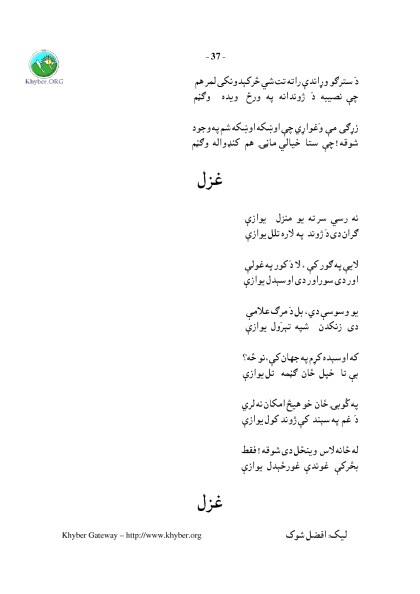 - 37 -
Khyber.ORG
دَ سترګو وړاندې راته تت شي ځرکېدونکی لمر هم
چې نصیبه دَ ژوندانه په ورځ ویده وګڼم
زړګی مې وَغواړي چې اوښکه اوښکه شم په وجود
شوقه! چې ستا خیالي ماڼۍ هم کنډواله وګڼم
غزل
نه رسي سر ته یو منزل یوازې
ګران دی دَ ژوند په لاره تلل یوازې
لایې په ګور کې، لا دَ کور په غولي
اور دی سور اور دی اوسېدل یوازې
یو وسوسې دي، بل دَ مرګ علامې
دی زنکدن شپه تېرول یوازې
که اوسېده کړم په جهان کې، نو څه؟
بې تا خپل ځان ګڼمه تل یوازې
په ګوښۍ ځان خو هیڅ امکان نه لري
دَ غم په سیند کې ژوند کول یوازې
له ځانه لاس وینځل دی شوقه! فقط
بڅرکي غوندې غورځېدل یوازې
غزل
Khyber Gateway – http://www.khyber.org
لیک: افضل شوک